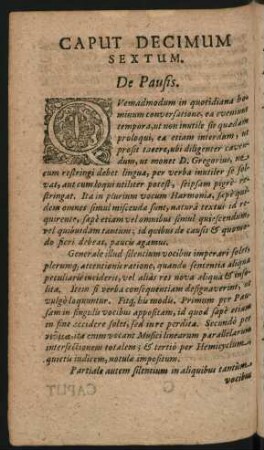 CAPUT DECIMUM
SEXTUM.
De Pausis.
QVemadmodum in quotidiana ho-
minum conversatione, ea eveniunt
tempora, ut non inutile sit quædam
proloqui, ea etiam interdum, ut
prosit tacere, ubi diligenter caven-
dum, ut monet D. Gregorius, ne
cum restringi debet lingua, per verba inutiler se sol-
vat, aut cum loqui utiliter potest, seipsam pigrè re-
stringat. Ita in plurium vocum Harmonia, sæpè qui-
dem omnes simul miscendæ sunt, natura textus id re-
quirente, sæpè etiam vel omnibus simul quiescendum,
vel quibusdam tantum; id quibus de causis & quomo-
do fieri debeat, paucis agamus.
Generale illud silentium vocibus imperari solet
plerumq; attentionis ratione, quando sententia aliqua
peculiaris incideris, vel alias res nova aliqua & insi-
lita. Item si verba consequentiam designaverint, ut
vulgò loquuntur. Fitq; bis modis. Primum per Pau-
sam in singulis vocibus appositam, id quod sæpè etiam
in fine accidere solet, sed jure perdita. Secundò per
ita enim vocant Musici linearum parallelarum
intersectionem totalem; & tertiò per Hemicyclum
quietis indicem, notulæ impositum.
Partiale autem silentium in aliquibus tantum
vocibus